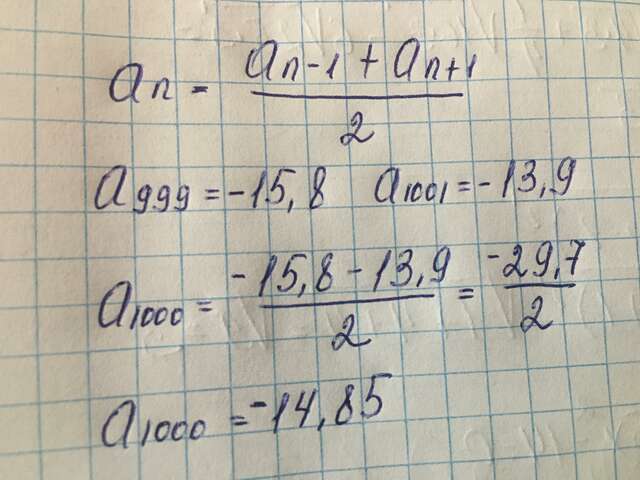 an = an-1 + an+1 / 2
a999 = -15,8 a1001 = -13,9
a1000 = -15,8 - 13,9 / 2 = -29,7 / 2
a1000 = -14,85